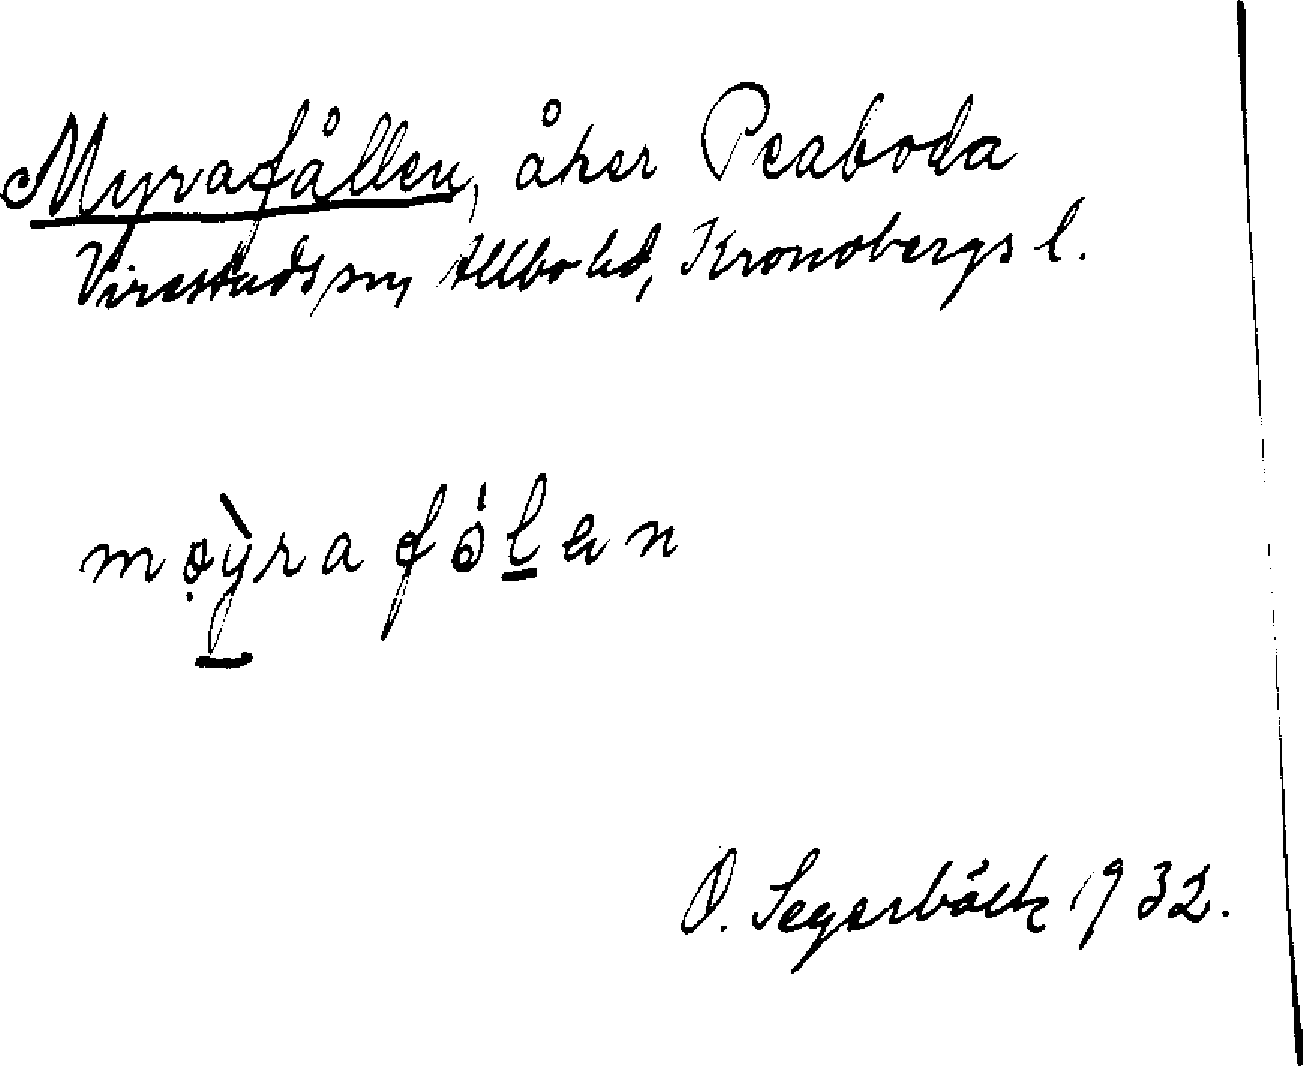 Myrafållen, åker Peaboda
Virestads sn, Allbo hd, Kronobergs l.
møỳrafólen
O. Segerbäck 1932.